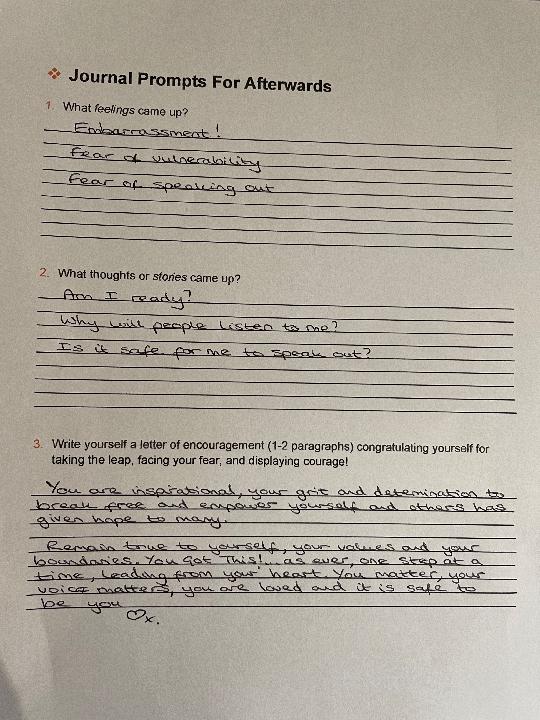 ❖ Journal Prompts For Afterwards
1. What feelings came up?
Embarrassment!
Fear of vulnerability
Fear of speaking out
2. What thoughts or stories came up?
Am I ready?
Why will people listen to me?
Is it safe for me to speak out?
3. Write yourself a letter of encouragement (1-2 paragraphs) congratulating yourself for
taking the leap, facing your fear, and displaying courage!
You are inspirational, your grit and detemination to
break free and empower yourself and others has
given hope to many.
Remain true to yourself, your values and your
boundaries. You Got This!... as ever, one step at a
time, leading from your heart. You matter, your
voice matters, you are loved and it is safe to
be you ♡x.